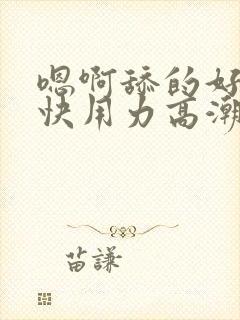 嗯啊舔的好
快用力高潮
苗謙